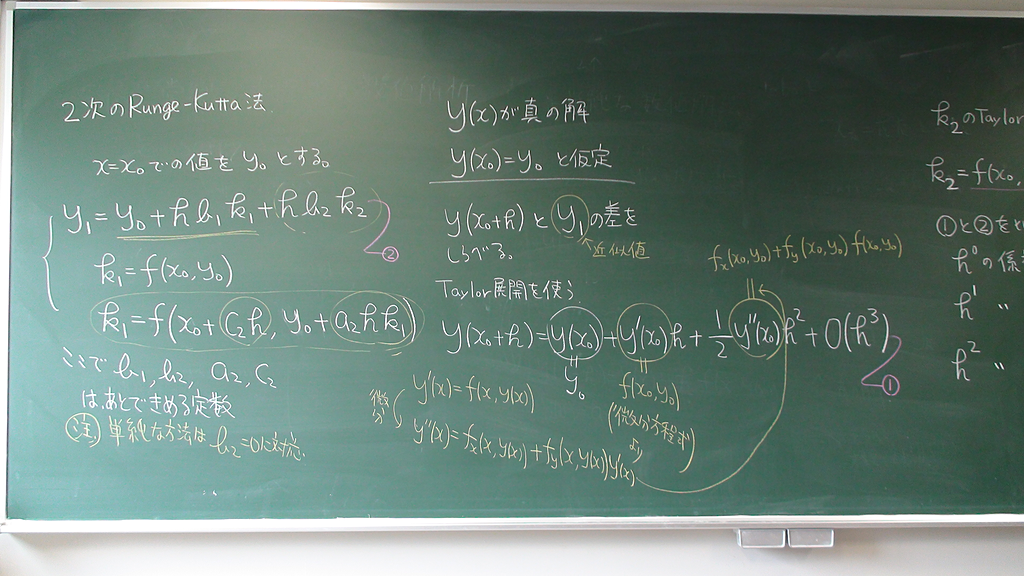 2次のRunge-Kutta法
x=x₀での値をy₀とする。
y₁=y₀+hb₁k₁+hb₂k₂
②
k₁=f(x₀,y₀)
k₁=f(x₀+c₂h, y₀+a₂hk₁)
ここでb₁,b₂, a₂,c₂
は、あとできめる定数
注) 単純な方法はb₂=0に対応.
y(x)が真の解
y(x₀)=y₀と仮定
y(x₀+h)とy₁の差を
しらべる。
近似値
Taylor展開を使う
fx(x₀,y₀)+fy(x₀,y₀)f(x₀,y₀)
y(x₀+h)=y(x₀)+y'(x₀)h+½y''(x₀)h²+O(h³)
①
y₀
f(x₀,y₀)
(微分方程式
より)
微分
y'(x)=f(x,y(x))
y''(x)=fx(x,y(x))+fy(x,y(x))y'(x)
k₂のTaylor
k₂=f(x₀,
①と②をと
h⁰の係
h¹ 〃
h² 〃